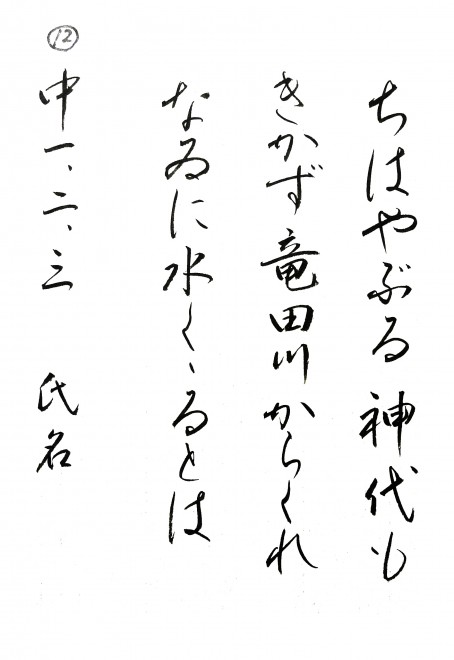 ⑫
ちはやぶる神代も
きかず竜田川からくれ
なゐに水くゝるとは
中一、二、三 氏名